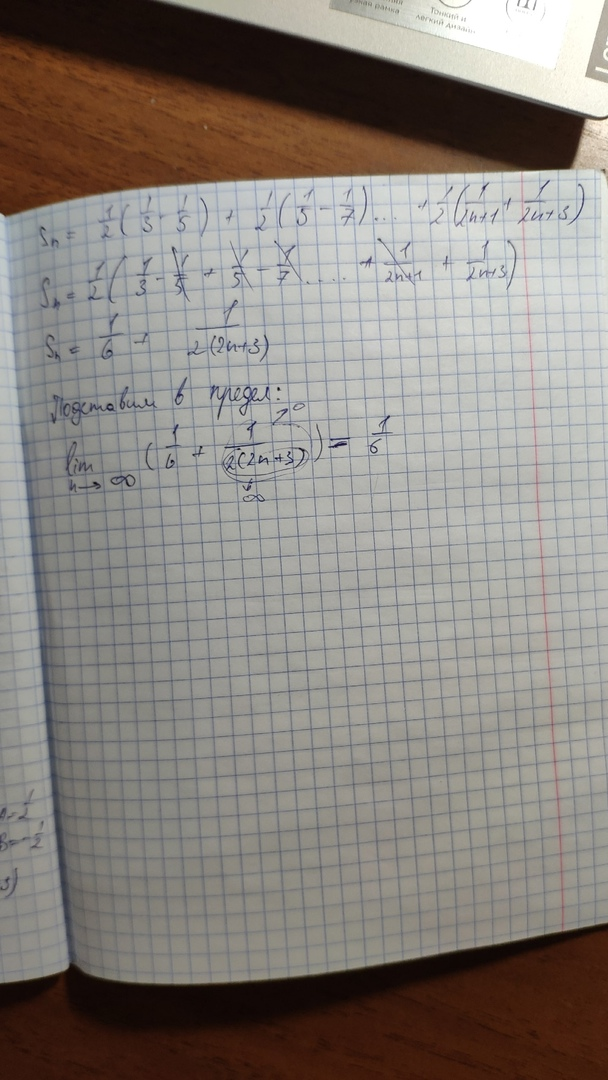 узкая рамка
Тонкий и
легкий дизайн
Sn = 1/2 (1/3 - 1/5) + 1/2 (1/5 - 1/7) ... + 1/2 (1/2n+1 + 1/2n+3)
Sn = 1/2 ( 1/3 - 1/5 + 1/5 - 1/7 .... + 1/2n+1 + 1/2n+3 )
Sn = 1/6 + 1/2(2n+3)
Подставим в предел:
lim n→∞ ( 1/6 + 1/2(2n+3) ) = 1/6
0
∞
A=1/2
B=-1/2
3)